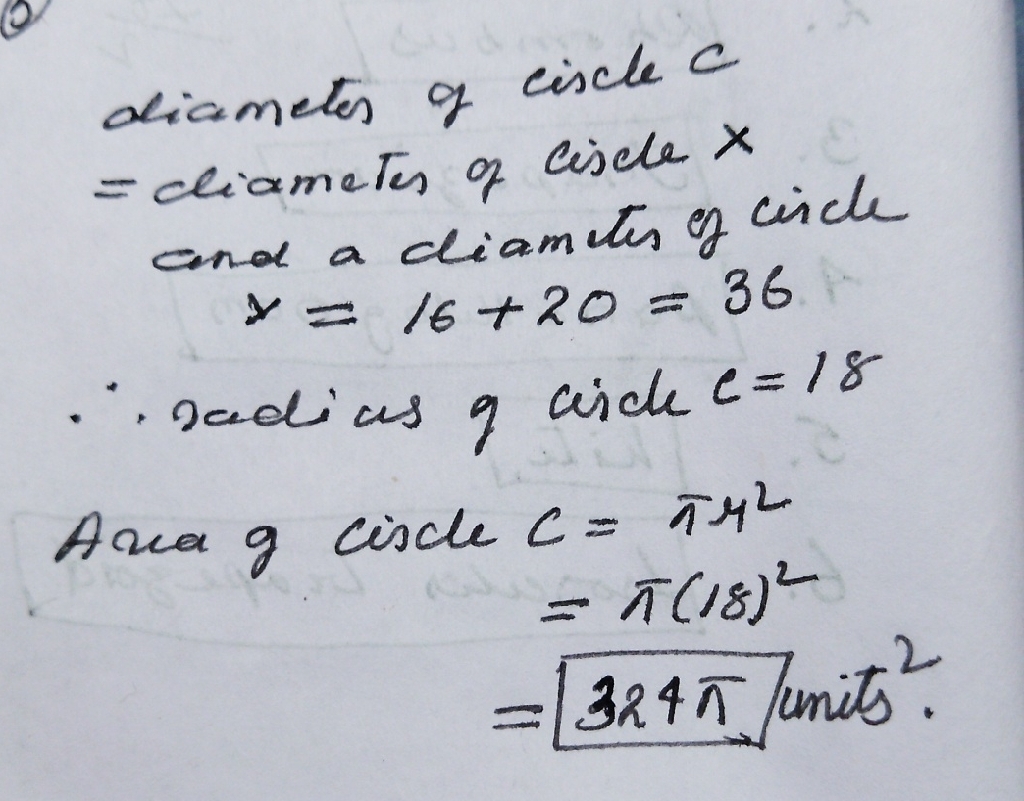 diameter of circle C
= diameter of circle X
and a diameter of circle
Y = 16 + 20 = 36
∴ radius of circle C = 18
Area of circle C = πr²
= π(18)²
= 324π units².